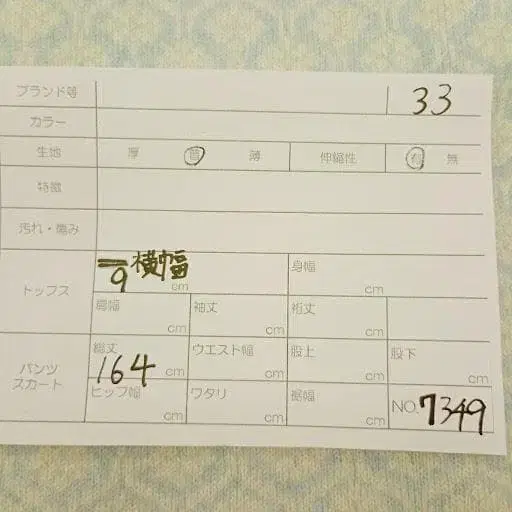 ブランド等 33
カラー
生地 厚 普 薄 伸縮性 有 無
特徴
汚れ・傷み
トップス 横幅 9 cm 身幅 cm
肩幅 cm 袖丈 cm 裄丈 cm
パンツ スカート 総丈 164 cm ウエスト幅 cm 股上 cm 股下 cm
ヒップ幅 cm ワタリ cm 裾幅 cm NO. 7349